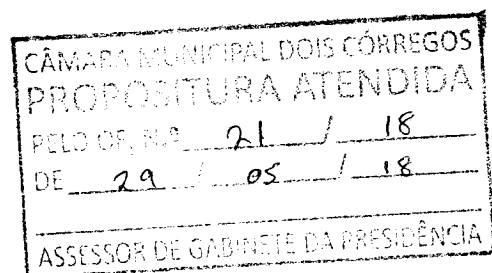 CÂMARA MUNICIPAL DOIS CÓRREGOS
PROPOSITURA ATENDIDA
PELO OF. N.º 21 / 18
DE 29 / 05 / 18
ASSESSOR DE GABINETE DA PRESIDÊNCIA